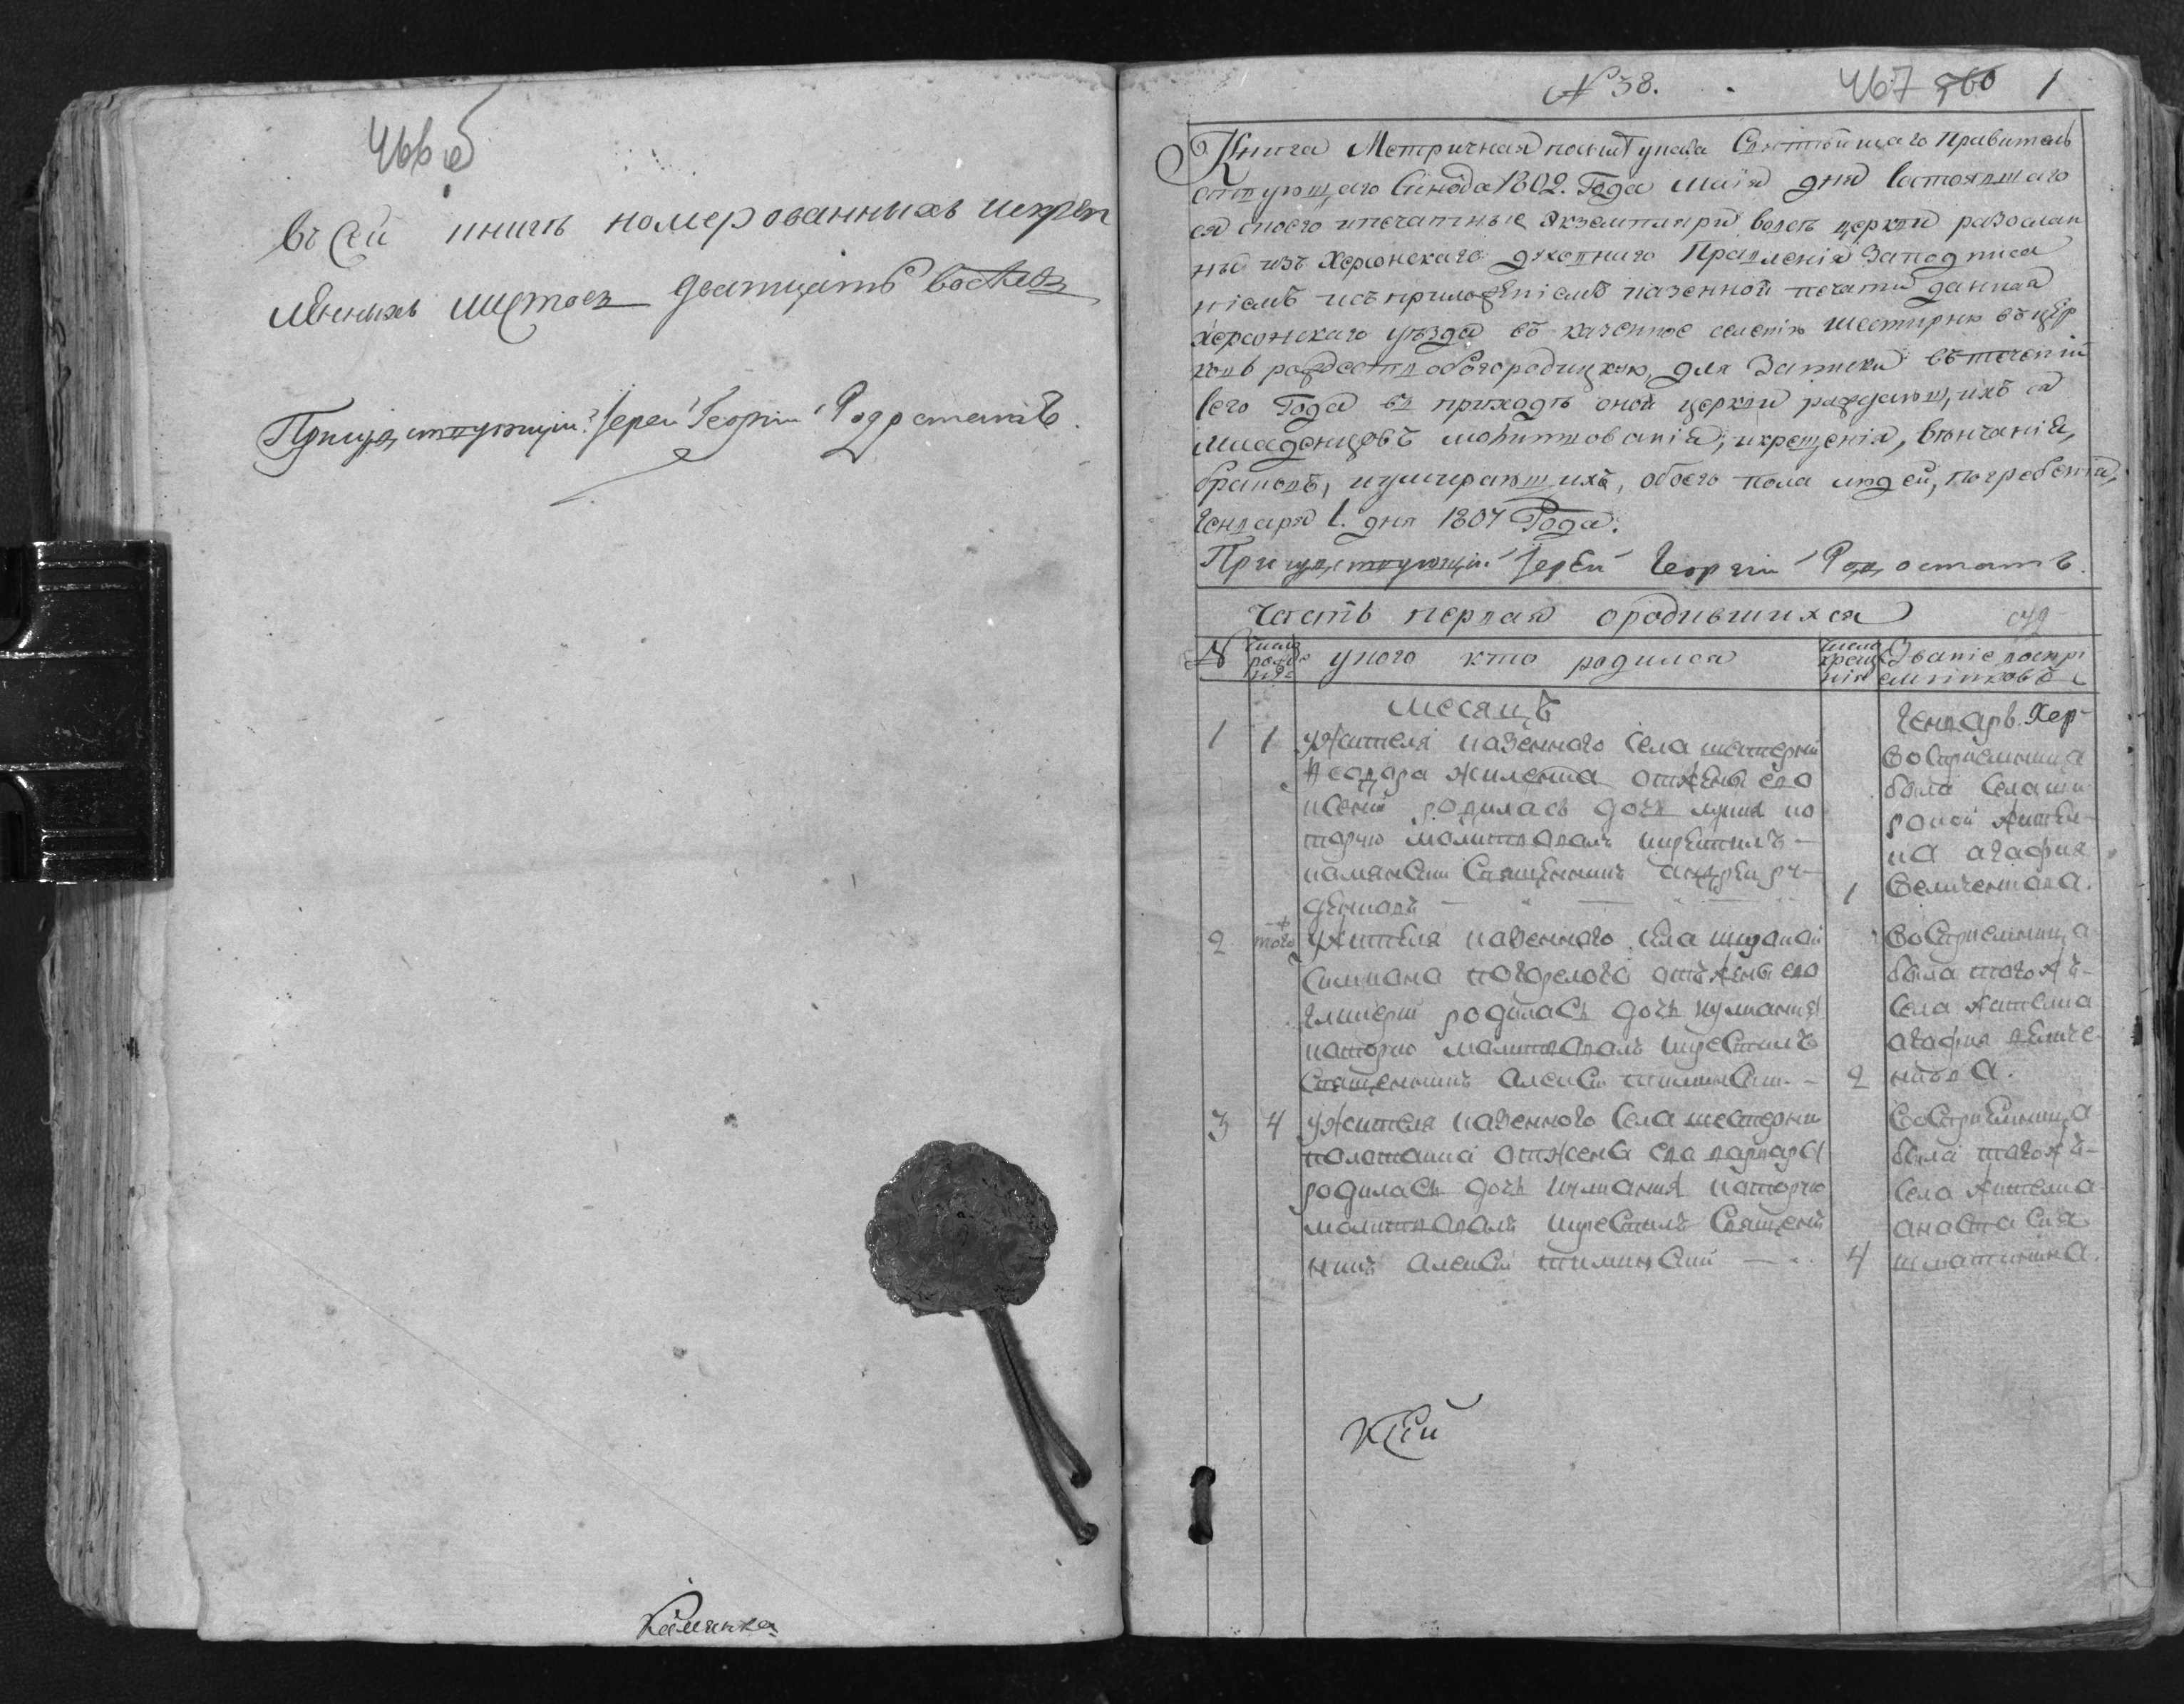 466 об
въ сей книгѣ номерованныхъ искреп
лѣнныхъ листовъ дватцать восемъ
Присудствующій Іерей Георгій Родостатъ.
Калинка
№ 38.
467 560 1
Книга Метричная по силѣ указа Святѣйшаго Правитель
ствующаго Синода 1802. Года маія дня состоявшаго
ся съ коего печатные экземпляри во всѣ церкви разослан
ны изъ Херсонскаго духовнаго Правленія За подписа
ніемъ и съ приложеніемъ казенной печати данная
Херсонскаго уѣзда въ казенное селеніе шестирню въ цер
ковь рождество богородицкую, для Записки въ теченіи
сего Года въ приходѣ оной церкви раждающихъ ся
младенцовъ молитвованія, и крещенія, вѣнчанія,
браковъ, и умирающихъ, обоего пола людей, погребенія,
Генваря 1. дня 1807 Года.
Присудствующій Іерей Георгій Родостатъ.
Часть первая о родившихся
№ число рожде нія у кого кто родился число креще нія Званіе воспрі емниковъ
месяцъ Генварь.
1 1 У жителя казенного села шестерни
Феодора жилента отжены его
ксении родилась дочь
торую молитвовалъ икрестилъ
каменский Священникъ андрей ру
денковъ 1
Восприемница
была села ши
рокой жител
ка агафия
величенкова.
2 того У жителя казенного села широкой
симиона погорелого отъ жены его
гликерии родилась дочь иулиания
которую молитвовалъ икрестилъ
Священникъ алексий тиминский 2
Восприемница
была тогожъ
села жителка
агафия величе
нкова.
3 4 У жителя казенного села шестерни
отжены его варвары
родилась дочь иулиания которую
молитвовалъ икрестилъ Священ
никъ алексий тиминский 4
Восприемница
была тогожъ
села жителка
анастасия

К сей